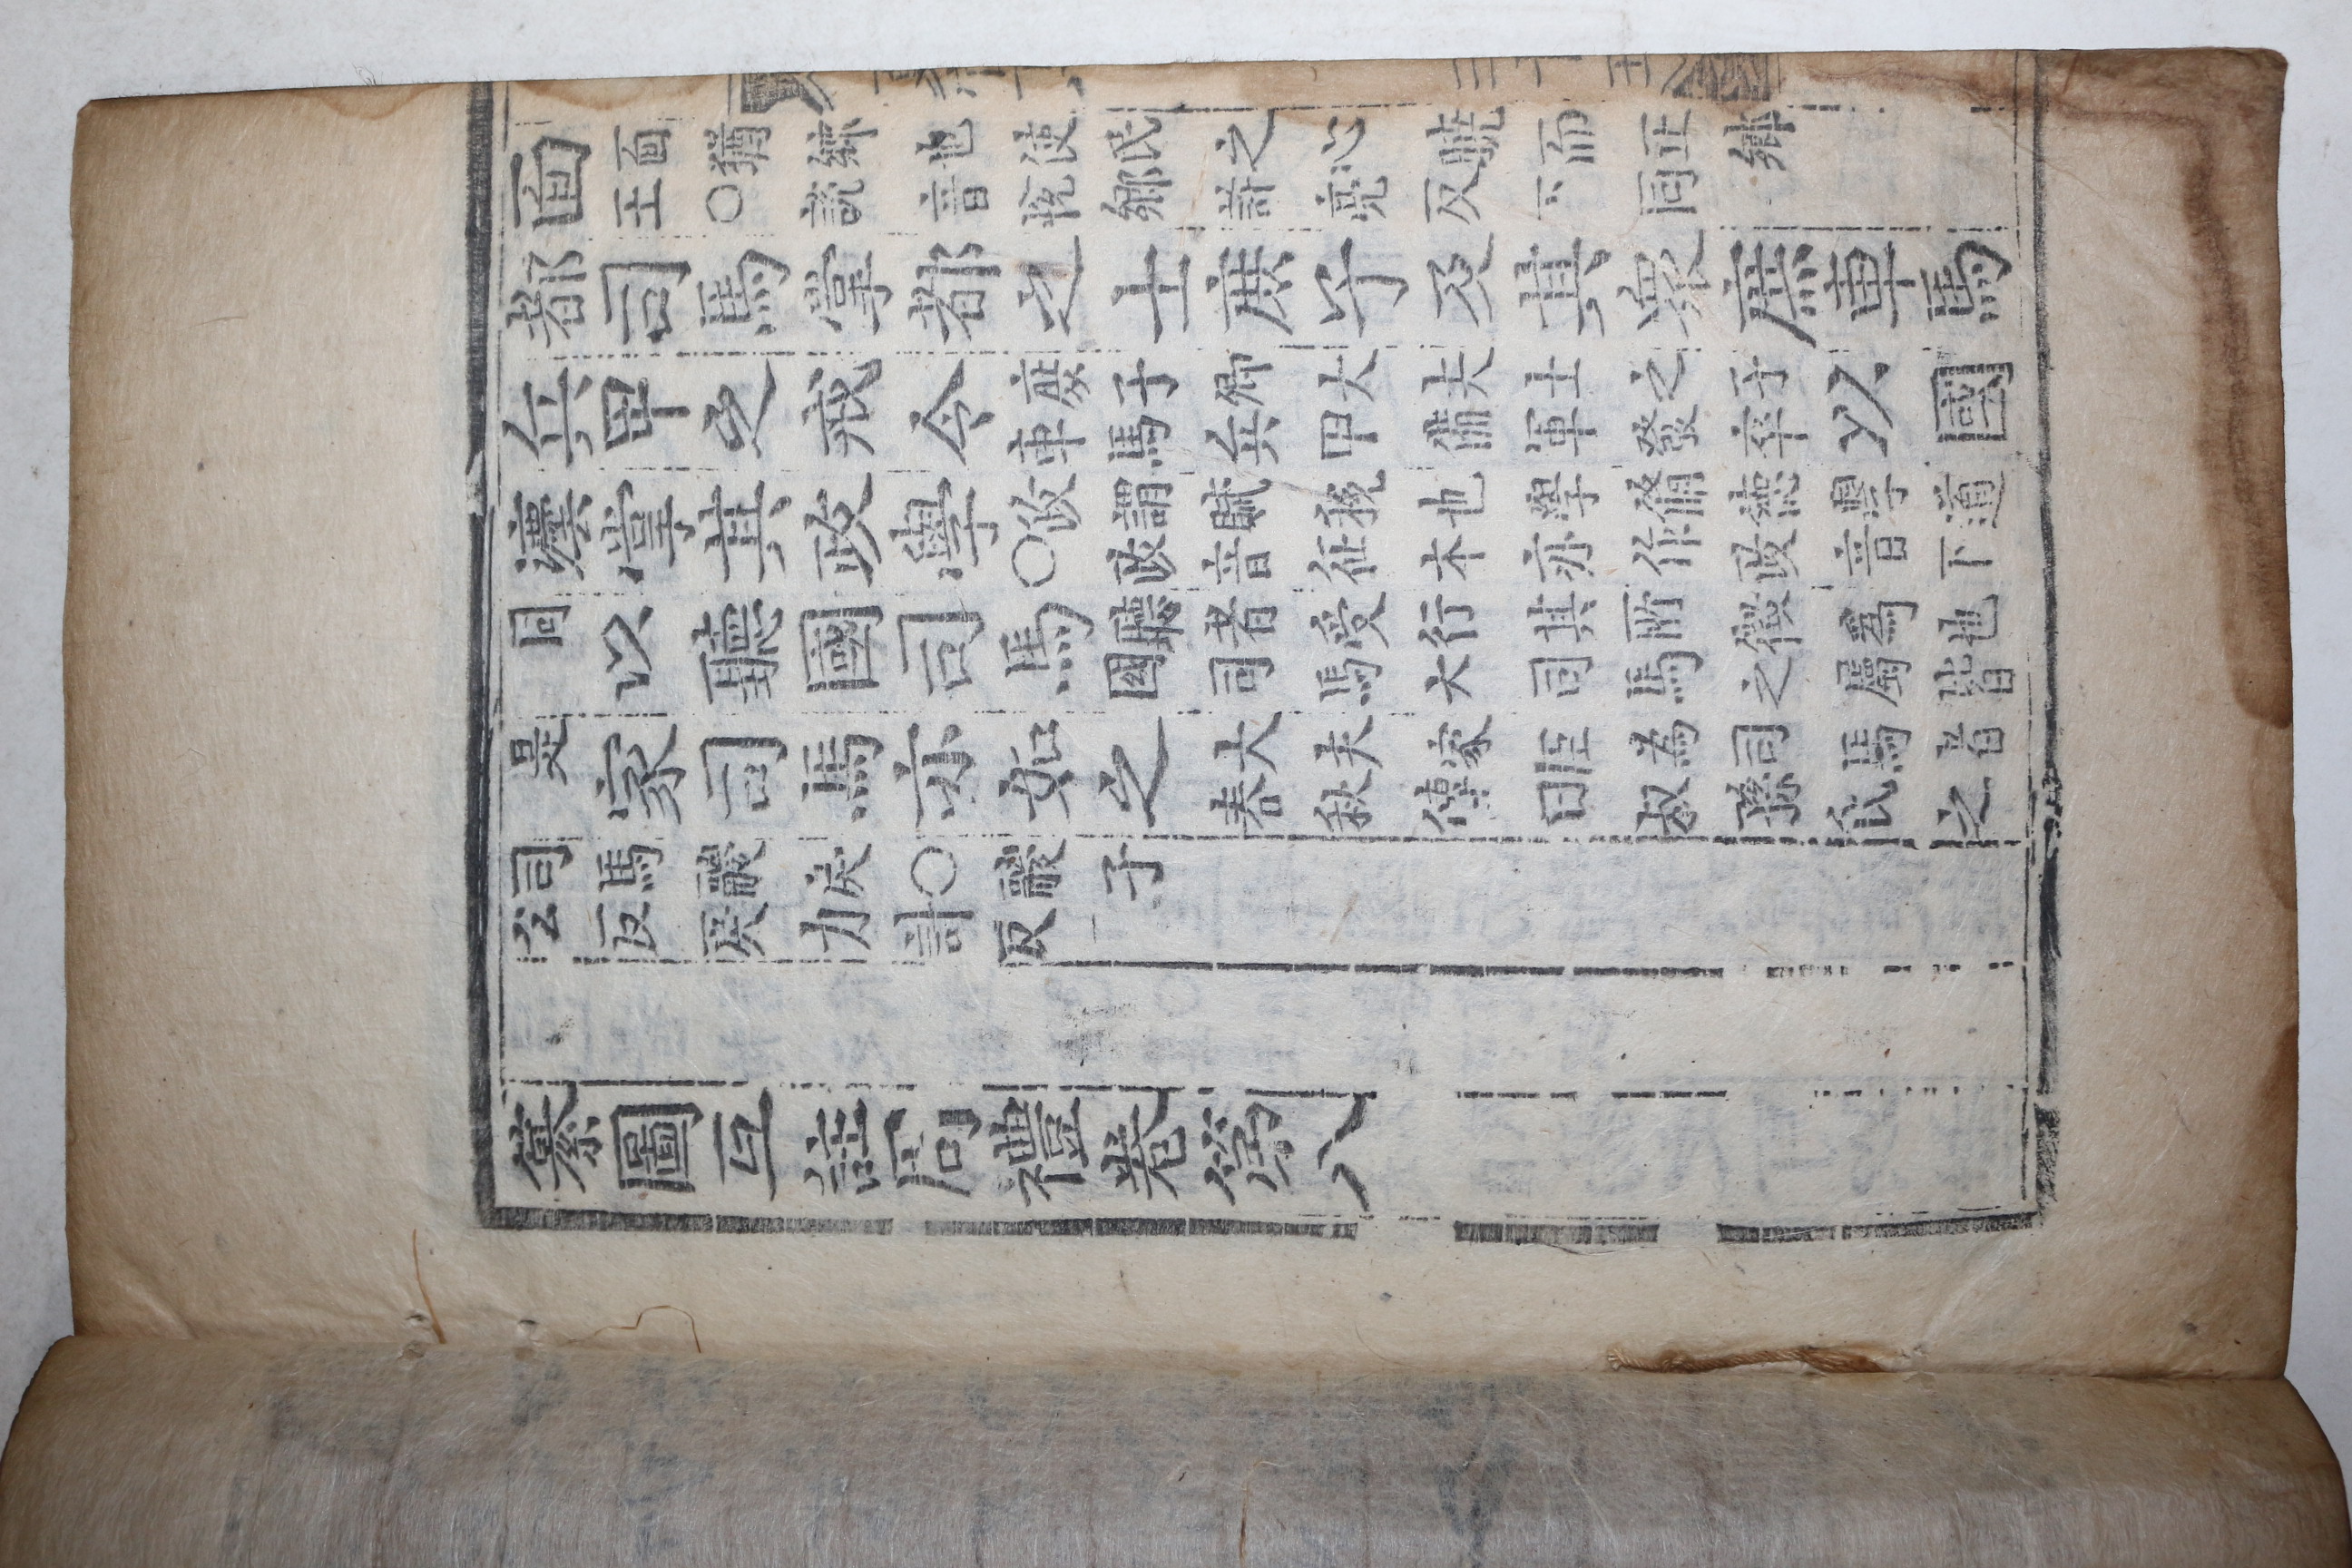 面面猶鄉也使民之心曉而正鄉王○説音悅鄉許亮反下同
都司馬掌都之士庶子及其衆庶車馬
兵甲之戒令庶子卿大夫士之子車馬兵甲備軍發卒以國
灋掌其政學政謂賦稅也學脩德學道○政音征本亦作政音下
同以聽國司馬聽者受行其所徵爲也國司馬大司馬之屬皆
是家司馬亦如之大夫家臣為司馬者春秋傳曰叔孫氏之
司馬鬷戾○鬷子公反戾力計反
纂圖互註周禮卷第八